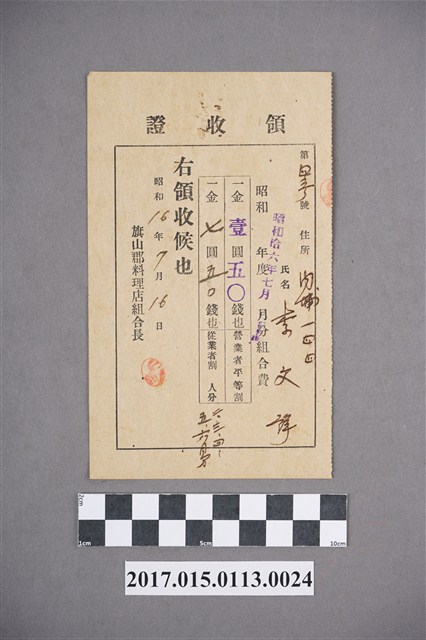 領收證
第 號 住所 內埔一四四
氏名 李文
昭和 年度 月份組合費
昭和拾六年七月
一金 壹圓五〇錢也營業者平等割
一金 七圓五〇錢也從業者割 人分
右領收候也
昭和16年7月16日
旗山郡料理店組合長
2cm
1cm
5cm
10cm
2017.015.0113.0024